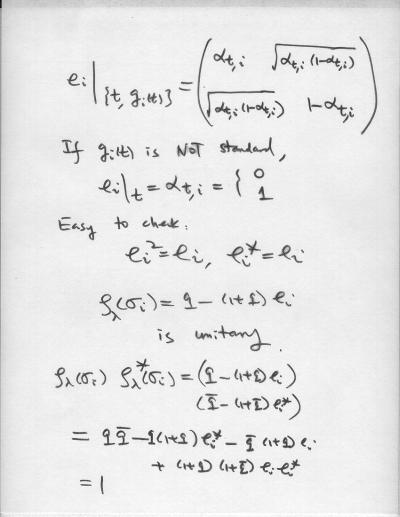 e_i|_{\{t, g_i(t)\}} = \begin{pmatrix} α_{t,i} & \sqrt{α_{t,i}(1-α_{t,i})} \\ \sqrt{α_{t,i}(1-α_{t,i})} & 1-α_{t,i} \end{pmatrix}
If g_i(t) is NOT standard,
e_i|_t = α_{t,i} = { 0
1
Easy to check:
e_i^2 = e_i, e_i^* = e_i
ρ_λ(σ_i) = q - (1+q) e_i
is unitary.
ρ_λ(σ_i) ρ_λ^*(σ_i) = (q - (1+q) e_i)
(q̄ - (1+q̄) e_i^*)
= q q̄ - q(1+q̄) e_i^* - q̄ (1+q) e_i
+ (1+q) (1+q̄) e_i e_i^*
= 1